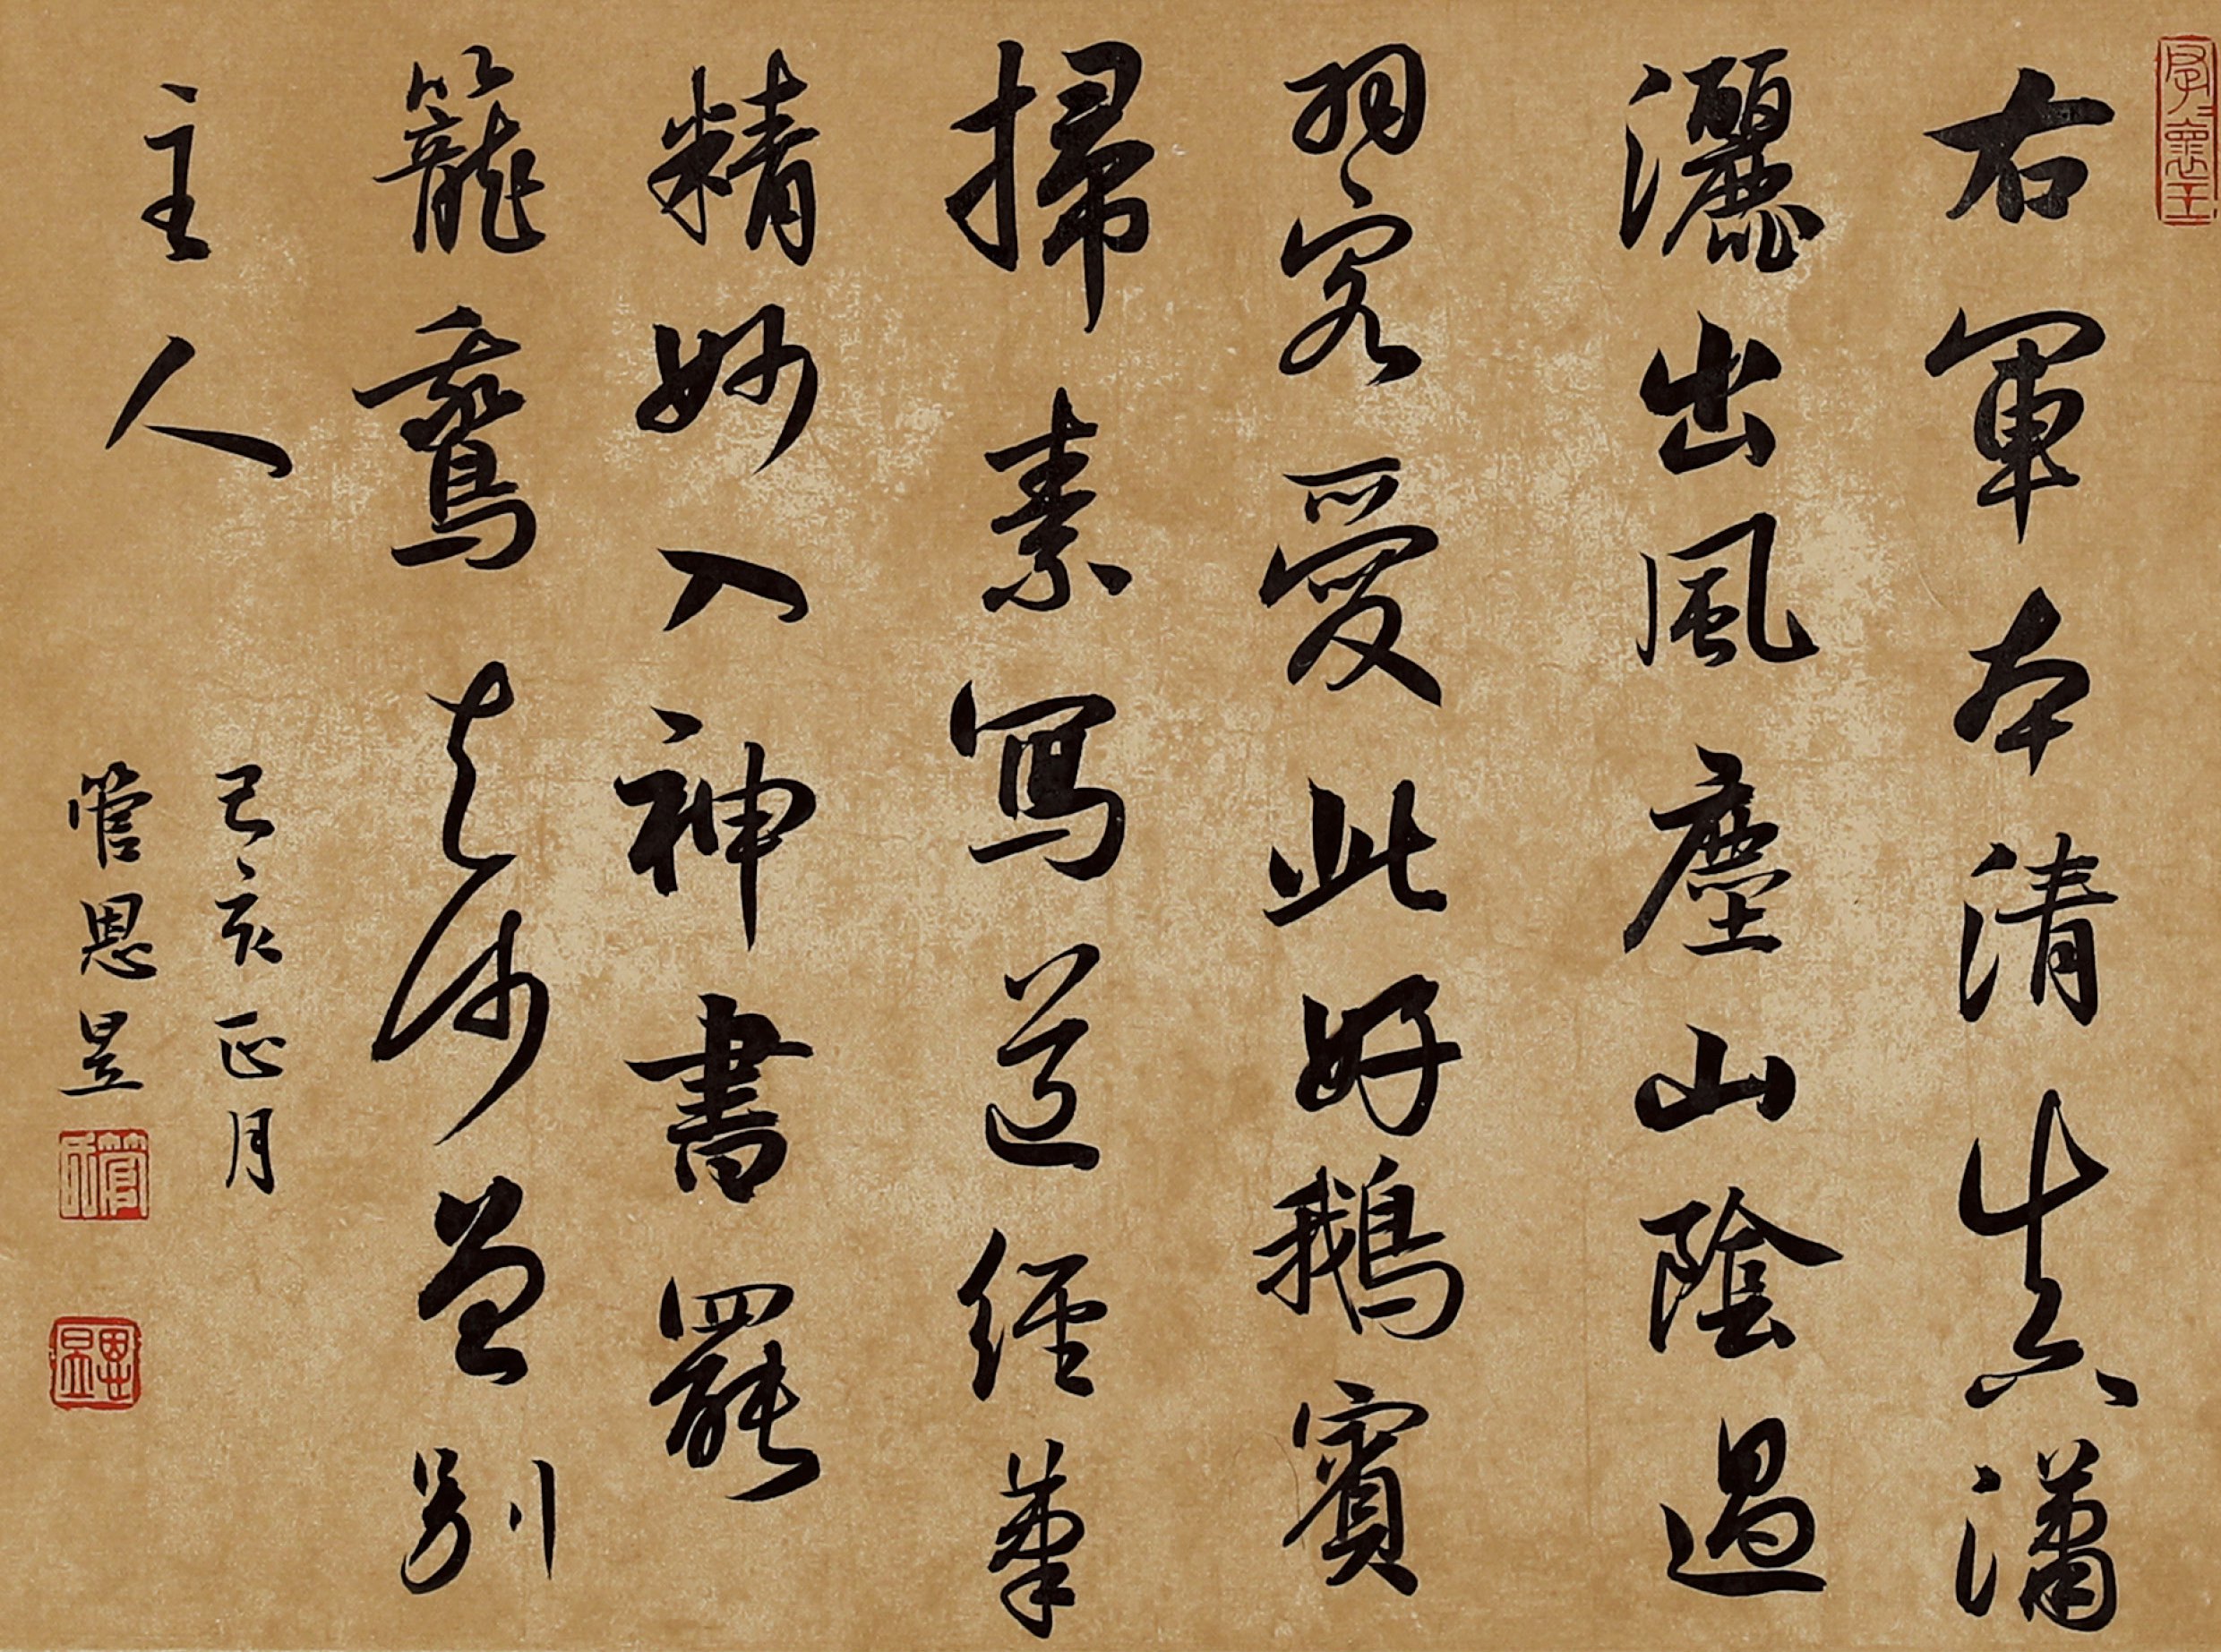 右軍本清真瀟
灑出風塵山陰過
羽客愛此好鵝賓
掃素寫道經筆
精妙入神書罷
籠鵞去何曾別
主人
己亥正月
管恩昱
恩昱